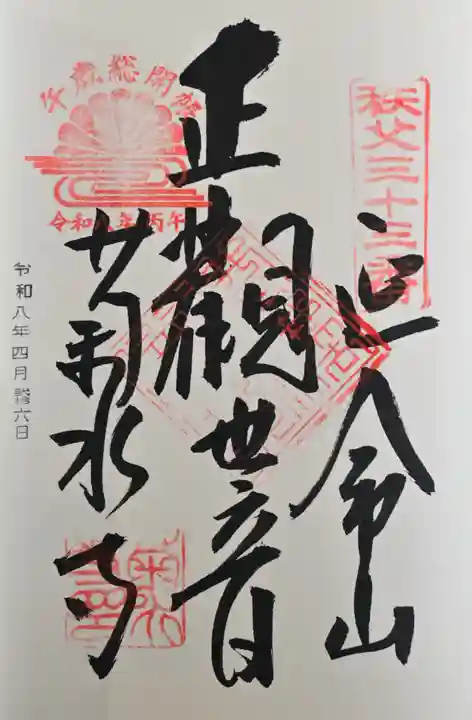 秩父三十三番
延命山
正観世音
午歳総開帳
令和八年丙午
菊水寺
令和八年四月 六日